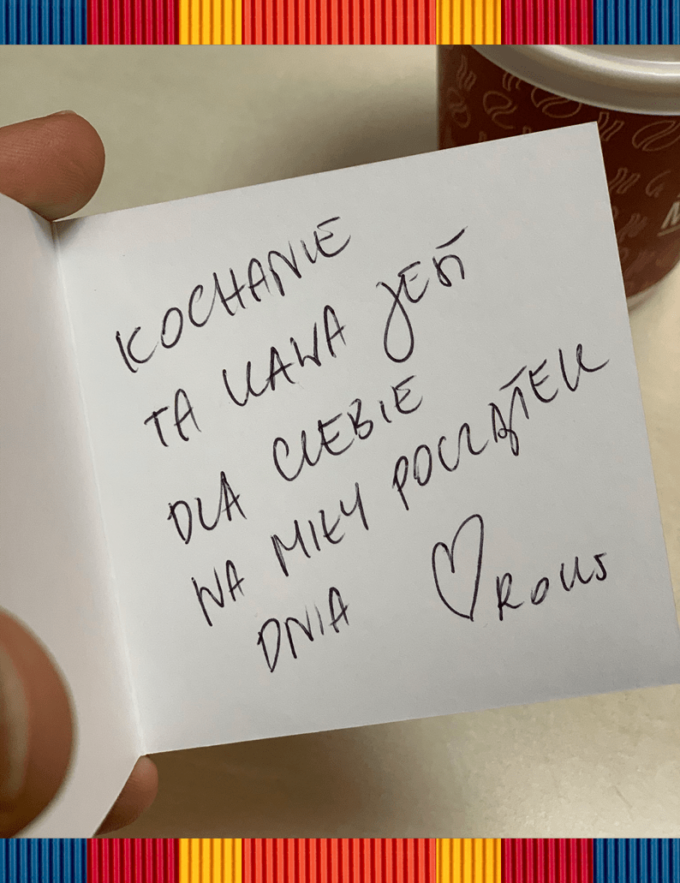 KOCHANIE
TA KAWA JEST
DLA CIEBIE
NA MIŁY POCZĄTEK
DNIA